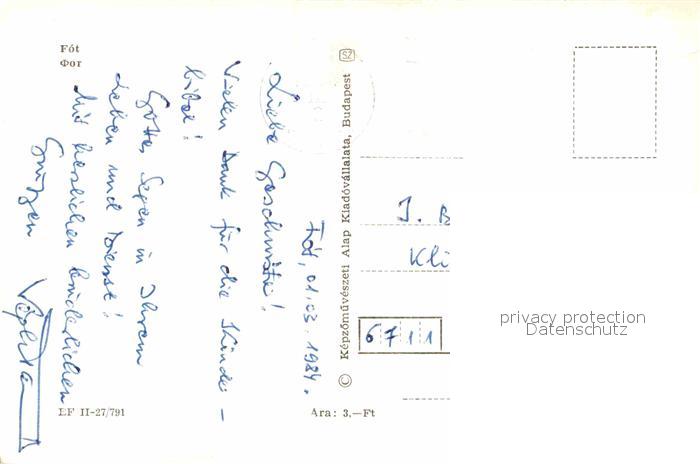 Fót
Фот
Fót, 01.03.1984.
Liebe Geschwister!
Vielen Dank für die Kinder-
bibel!
Gottes Segen in Ihrem
Leben und Dienst!
Mit herzlichen brüderlichen
Grüßen
EF II-27/791
© Képzőművészeti Alap Kiadóvállalata, Budapest
SZ
Ára: 3,—Ft
J. B
Kli
6711
privacy protection
Datenschutz